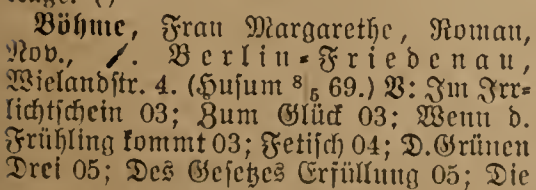 Böhme, Frau Margarethe, Roman,
Nov., /. Berlin-Friedenau,
Wielandstr. 4. (Husum 8/5 69.) V: Im Irr-
lichtschein 03; Zum Glück 03; Wenn d.
Frühling kommt 03; Fetisch 04; D. Grünen
Drei 05; Des Gesetzes Erfüllung 05; Die